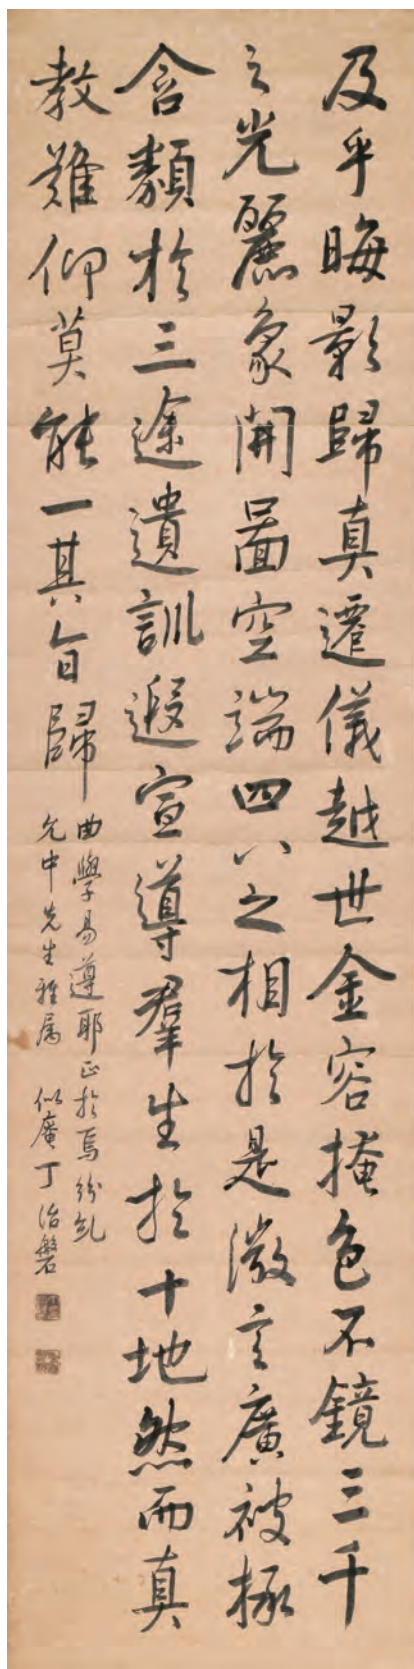 及乎晦影歸真遷儀越世金容掩色不鏡三千
之光麗象開啚空端四八之相扵是微言廣被拯
含類扵三途遺訓遐宣導羣生扵十地然而真
教難仰莫能一其旨歸
曲學易遵耶正扵焉紛糺
允中先生雅属 似庵丁治磐